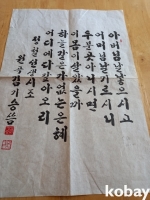 아버님 날 낳으시고
어머님 날 기르시니
두 분 곧 아니시면
이 몸이 살았을까
하늘 같은 가없는 은혜
어디에다 갚아 오리
정철선생 시조
kobay